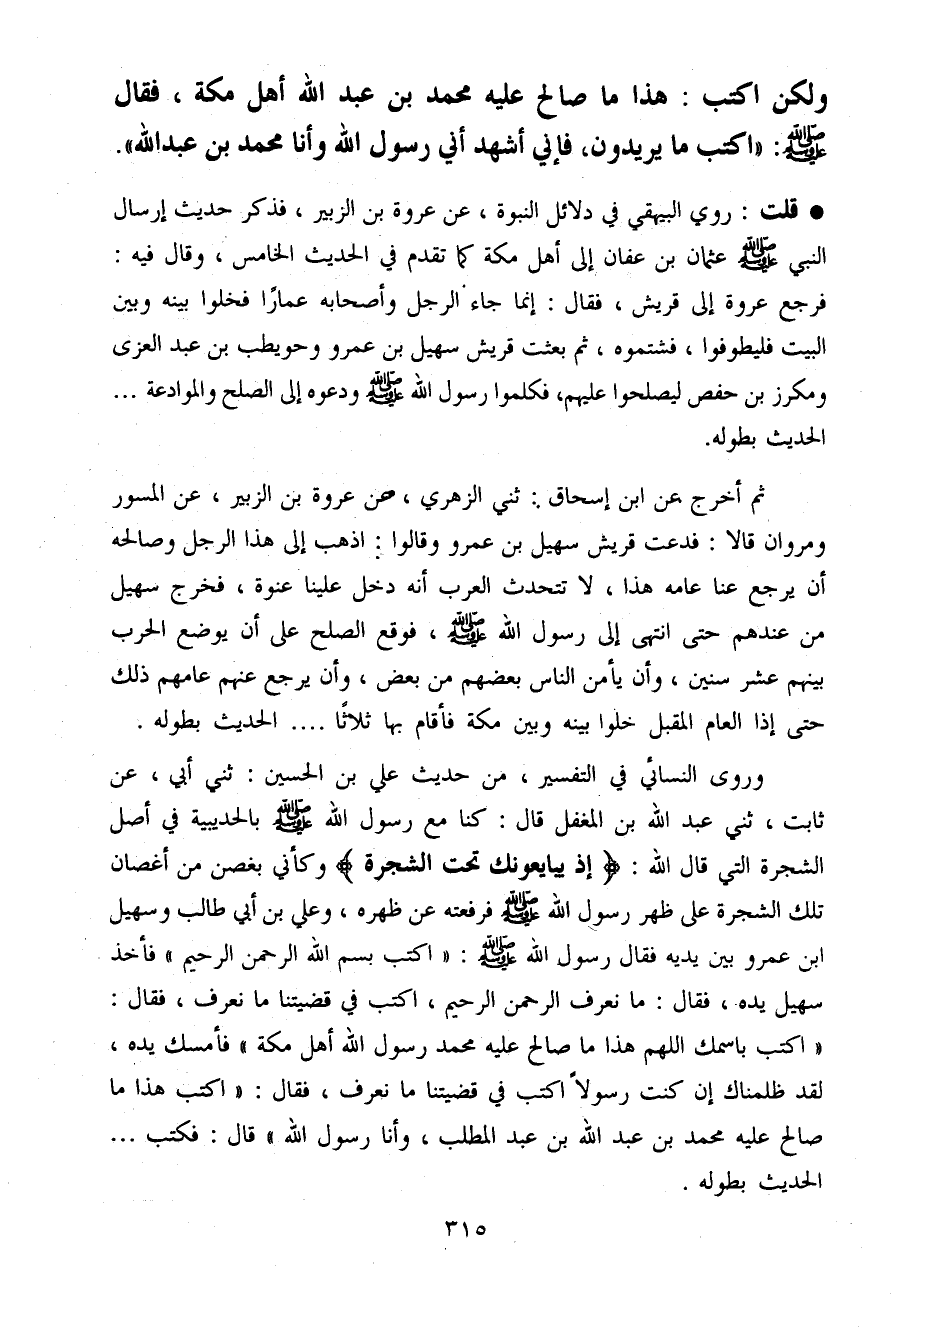 ولكن اكتب : هذا ما صالح عليه محمد بن عبد الله أهل مكة ، فقال
ﷺ: «اكتب ما يريدون، فإني أشهد أني رسول الله وأنا محمد بن عبدالله».
● قلت : روي البيهقي في دلائل النبوة ، عن عروة بن الزبير ، فذكر حديث إرسال
النبي ﷺ عثمان بن عفان إلى أهل مكة كما تقدم في الحديث الخامس ، وقال فيه :
فرجع عروة إلى قريش ، فقال : إنما جاء الرجل وأصحابه عمارًا فخلوا بينه وبين
البيت فليطوفوا ، فشتموه ، ثم بعثت قريش سهيل بن عمرو وحويطب بن عبد العزى
ومكرز بن حفص ليصلحوا عليهم، فكلموا رسول الله ﷺ ودعوه إلى الصلح والموادعة ...
الحديث بطوله.
ثم أخرج عن ابن إسحاق : ثني الزهري ، عن عروة بن الزبير ، عن المسور
ومروان قالا : فدعت قريش سهيل بن عمرو وقالوا : اذهب إلى هذا الرجل وصالحه
أن يرجع عنا عامه هذا ، لا تتحدث العرب أنه دخل علينا عنوة ، فخرج سهيل
من عندهم حتى انتهى إلى رسول الله ﷺ ، فوقع الصلح على أن يوضع الحرب
بينهم عشر سنين ، وأن يأمن الناس بعضهم من بعض ، وأن يرجع عنهم عامهم ذلك
حتى إذا العام المقبل خلوا بينه وبين مكة فأقام بها ثلاثًا .... الحديث بطوله .
وروى النسائي في التفسير ، من حديث علي بن الحسين : ثني أبي ، عن
ثابت ، ثني عبد الله بن المغفل قال : كنا مع رسول الله ﷺ بالحديبية في أصل
الشجرة التي قال الله : ﴿ إذ يبايعونك تحت الشجرة ﴾ وكأني بغصن من أغصان
تلك الشجرة على ظهر رسول الله ﷺ فرفعته عن ظهره ، وعلي بن أبي طالب وسهيل
ابن عمرو بين يديه فقال رسول الله ﷺ : « اكتب بسم الله الرحمن الرحيم » فأخذ
سهيل يده ، فقال : ما نعرف الرحمن الرحيم ، اكتب في قضيتنا ما نعرف ، فقال :
« اكتب باسمك اللهم هذا ما صالح عليه محمد رسول الله أهل مكة » فأمسك يده ،
لقد ظلمناك إن كنت رسولاً اكتب في قضيتنا ما نعرف ، فقال : « اكتب هذا ما
صالح عليه محمد بن عبد الله بن عبد المطلب ، وأنا رسول الله » قال : فكتب ...
الحديث بطوله .
٣١٥